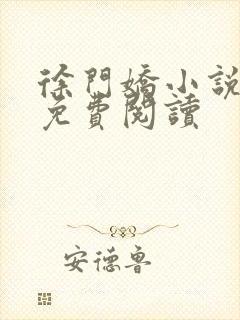 徐門嬌小說
免費閱讀
安德魯